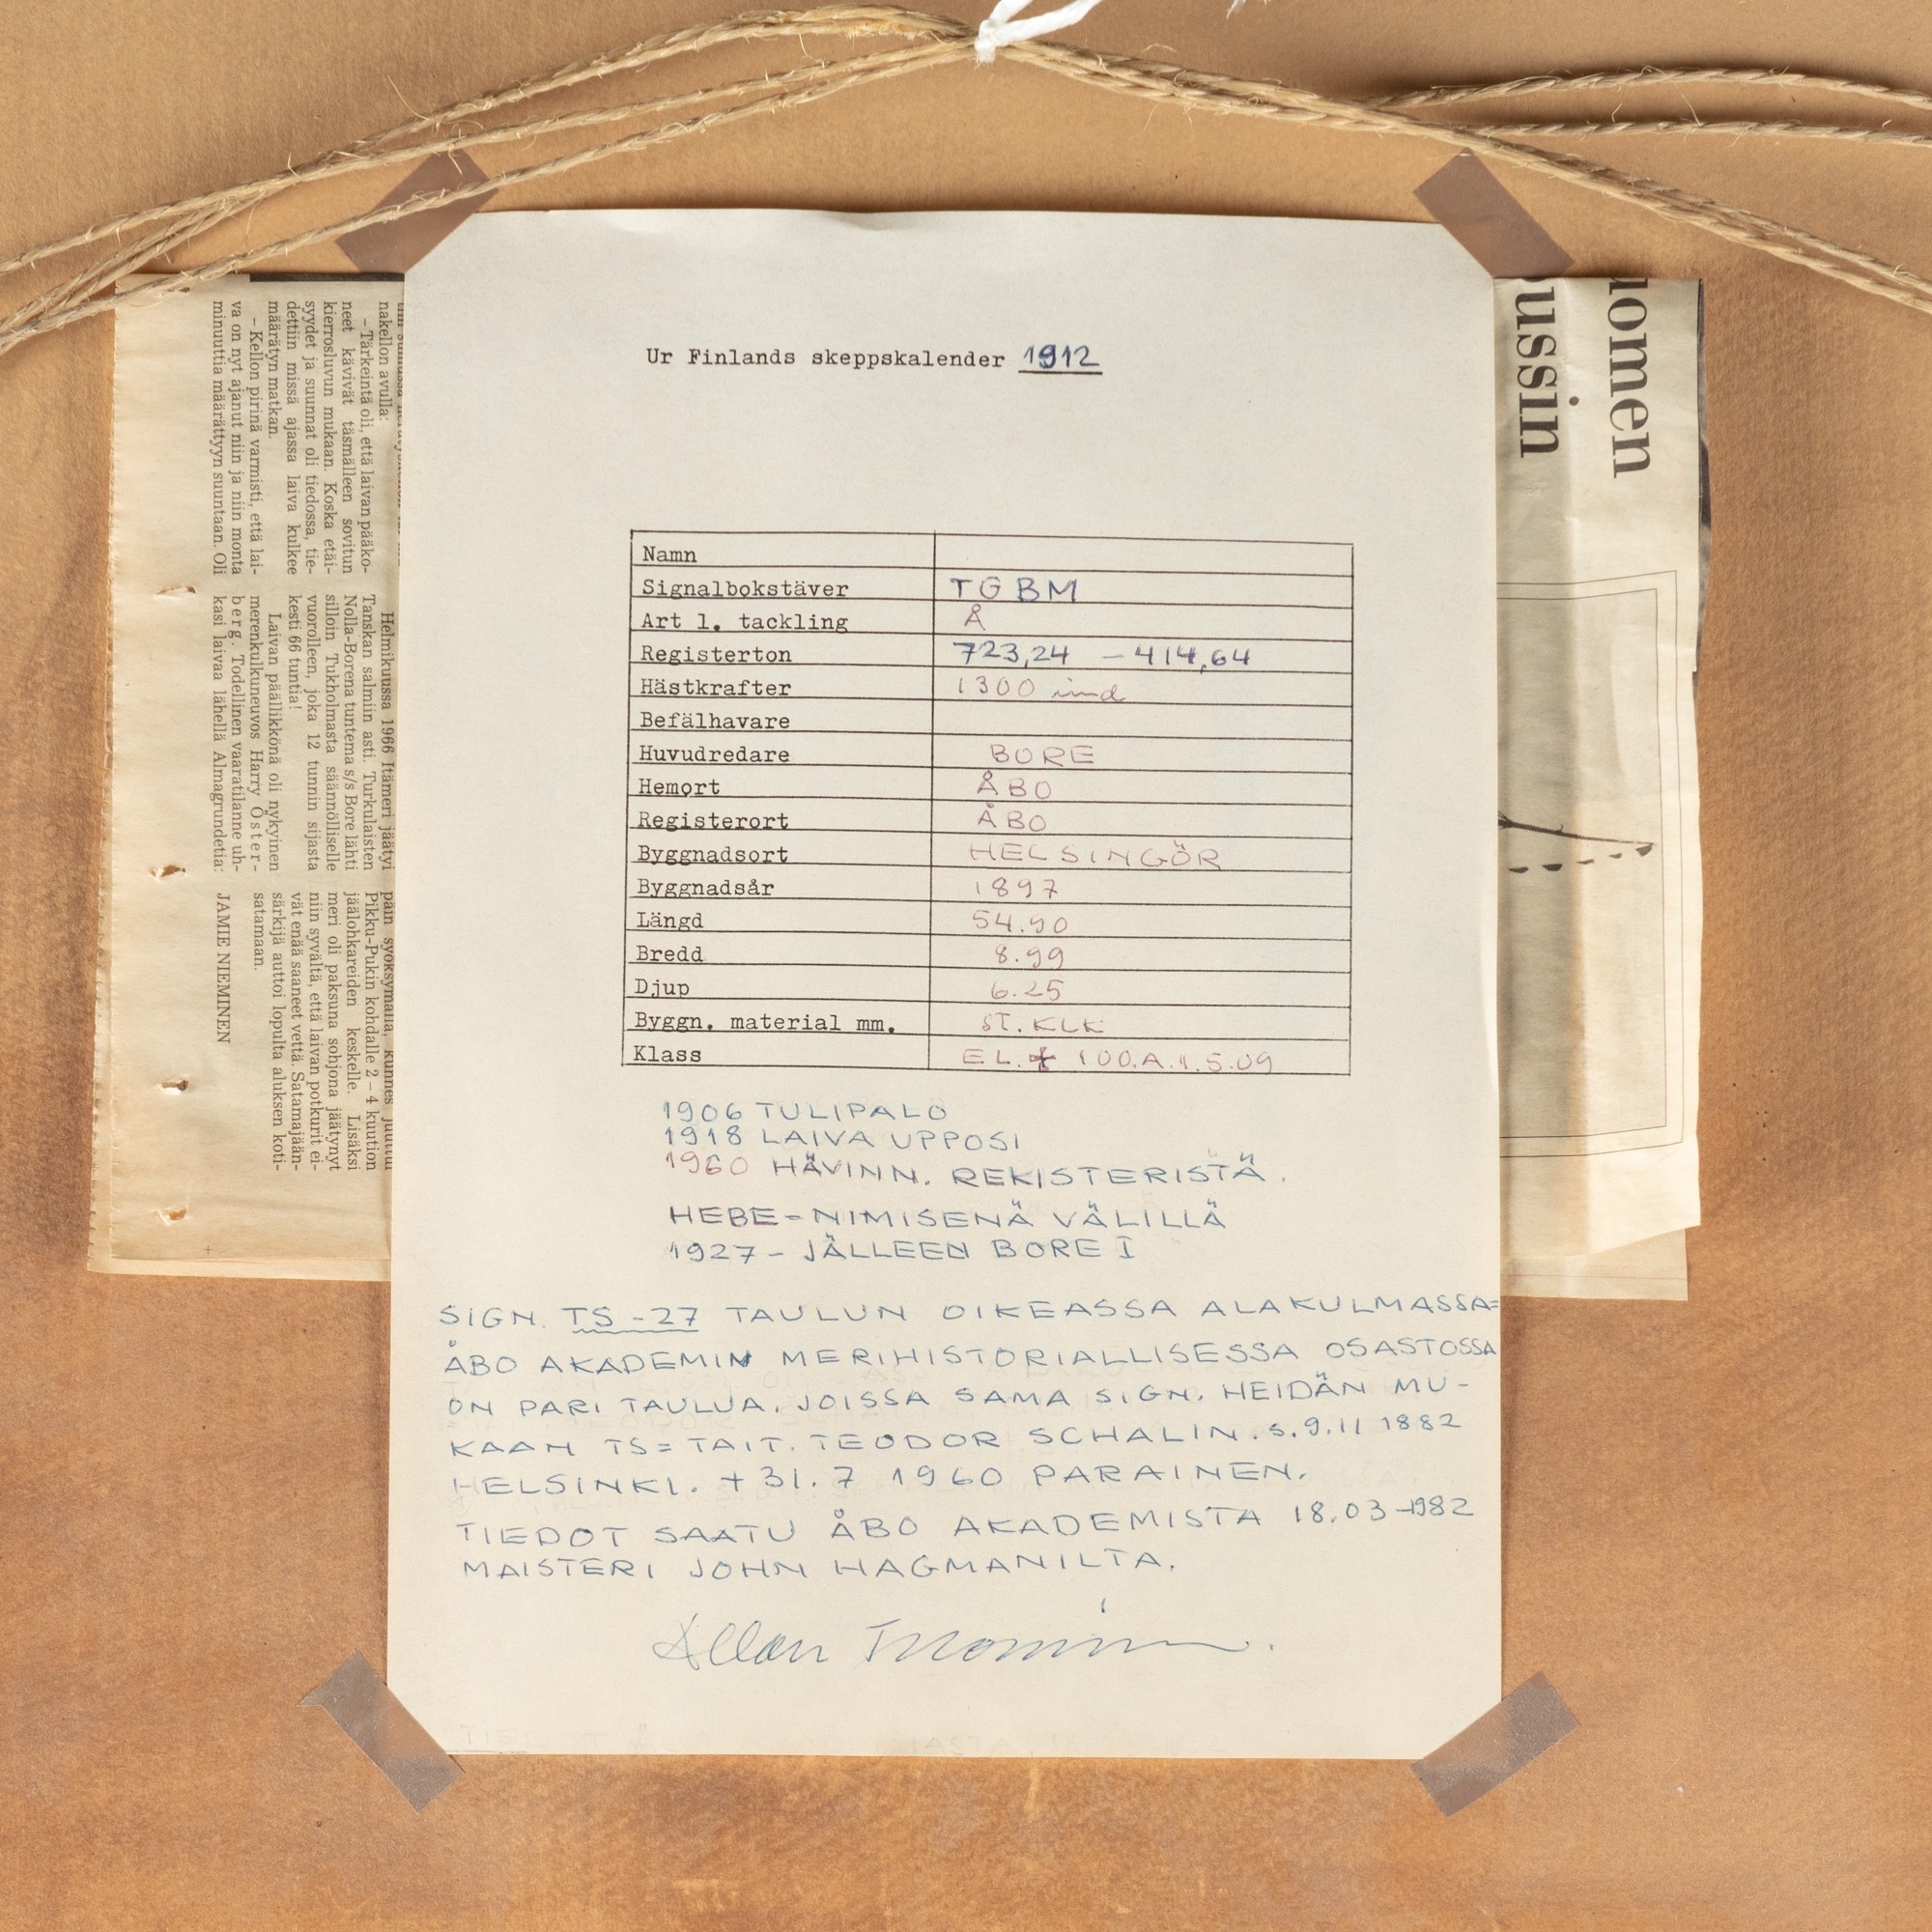 Ur Finlands skeppskalender 1912
Namn
Signalbokstäver TGBM
Art l. tackling Å
Registerton 723,24 – 414,64
Hästkrafter 1300 ind
Befälhavare
Huvudredare BORE
Hemort ÅBO
Registerort ÅBO
Byggnadsort HELSINGÖR
Byggnadsår 1897
Längd 54.90
Bredd 8.99
Djup 6.25
Byggn. material mm. ST. KLK
Klass EL. + 100.A.1.5.09
1906 TULIPALO
1918 LAIVA UPPOSI
1960 HÄVINN. REKISTERISTÄ.
HEBE-NIMISENÄ VÄLILLÄ
1927 – JÄLLEEN BORE I
SIGN. TS-27 TAULUN OIKEASSA ALAKULMASSA=
ÅBO AKADEMIN MERIHISTORIALLISESSA OSASTOSSA
ON PARI TAULUA, JOISSA SAMA SIGN. HEIDÄN MU-
KAAN TS= TAIT. TEODOR SCHALIN. S. 9.11 1882
HELSINKI. + 31.7 1960 PARAINEN.
TIEDOT SAATU ÅBO AKADEMISTA 18.03-1982
MAISTERI JOHN HAGMANILTA.
Allan
nakellon avulla:
– Tärkeintä oli, että laivan pääko-
neet kävivät täsmälleen sovitun
kierrosluvun mukaan. Koska etäi-
syydet ja suunnat oli tiedossa, tie-
dettiin missä ajassa laiva kulkee
määrätyn matkan.
– Kellon pirinä varmisti, että lai-
va on nyt ajanut niin ja niin monta
minuuttia määrättyyn suuntaan. Oli
Helmikuussa 1966 Itämeri jäätyi
Tanskan salmiin asti. Turkulaisten
Nolla-Borena tuntema s/s Bore lähti
silloin Tukholmasta säännölliselle
vuorolleen, joka 12 tunnin sijasta
kesti 66 tuntia!
Laivan päällikkönä oli nykyinen
merenkulkuneuvos Harry Öster-
berg. Todellinen vaaratilanne uh-
kasi laivaa lähellä Almagrundetia:
päin syöksymällä, kunnes juuttui
Pikku-Pukin kohdalle 2 – 4 kuution
jäälohkareiden keskelle. Lisäksi
meri oli paksuna sohjona jäätynyt
niin syvältä, että laivan potkurit ei-
vät enää saaneet vettä. Satamajään-
särkijä auttoi lopulta aluksen koti-
satamaan.
JAMIE NIEMINEN
uomen
ussin